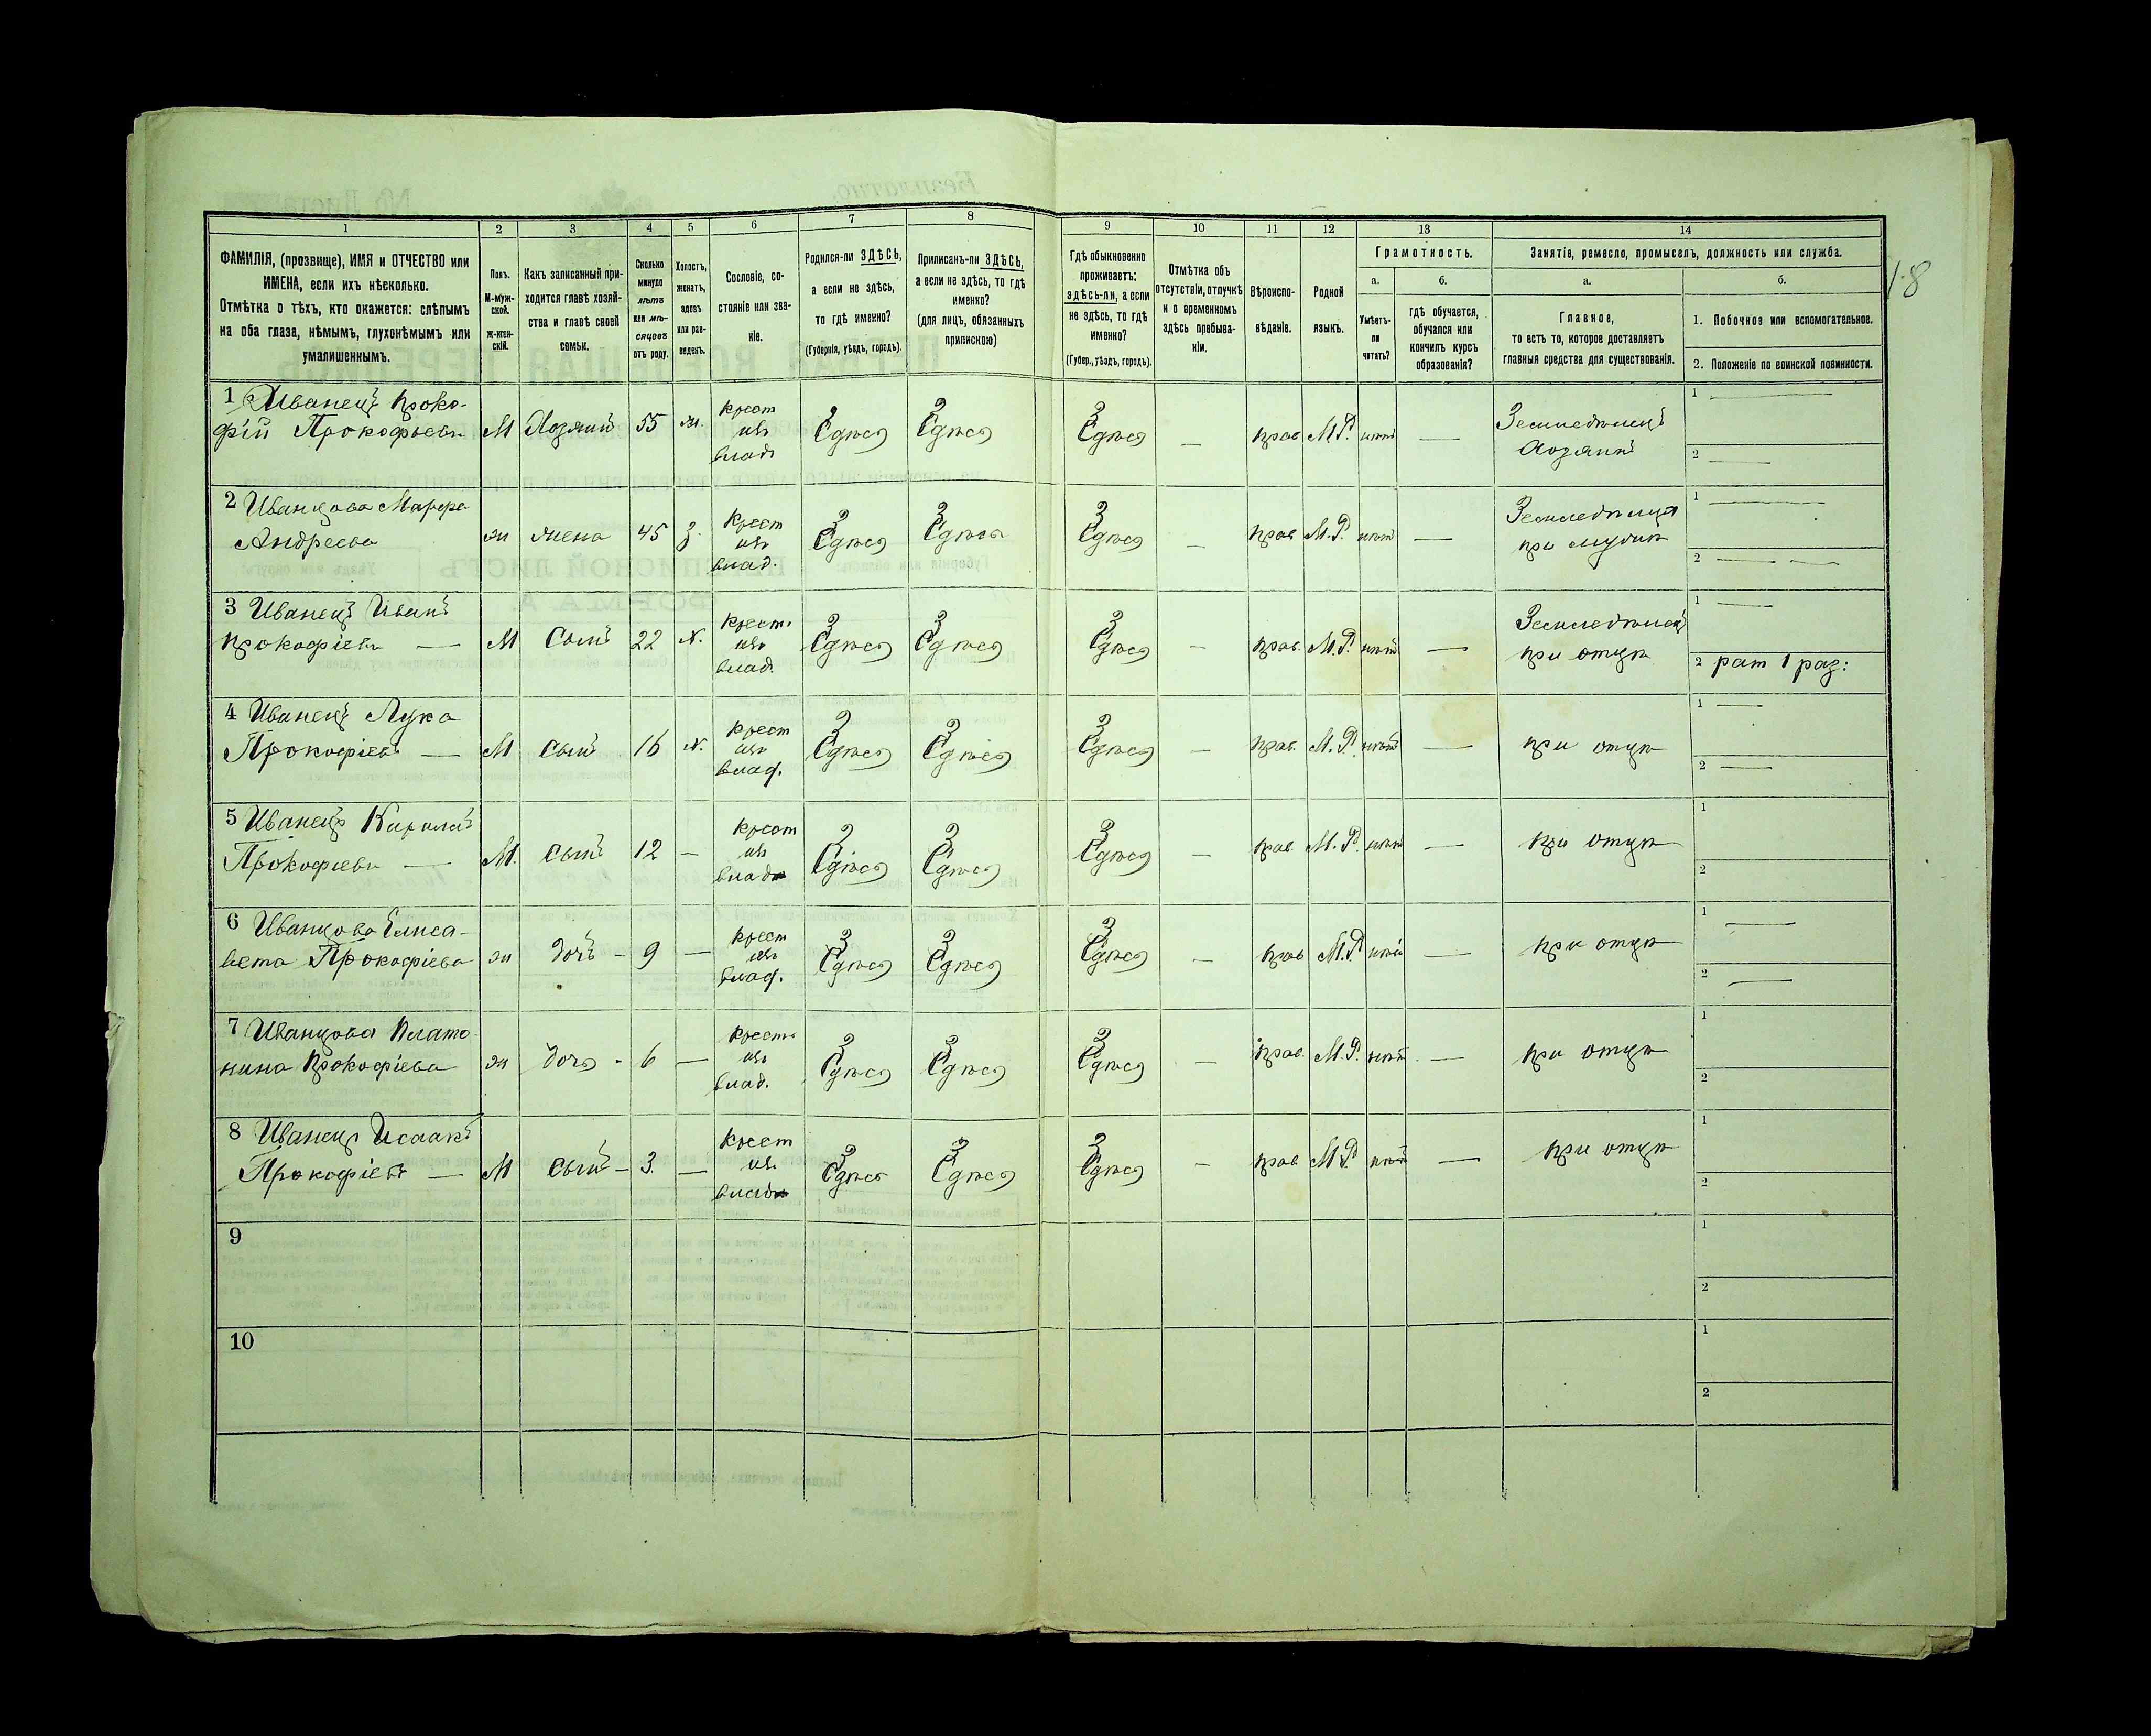 18
1 2 3 4 5 6 7 8 9 10 11 12 13 14
ФАМИЛІЯ, (прозвище), ИМЯ и ОТЧЕСТВО или
ИМЕНА, если ихъ нѣсколько.
Отмѣтка о тѣхъ, кто окажется: слѣпымъ
на оба глаза, нѣмымъ, глухонѣмымъ или
умалишеннымъ.
Полъ.
М-муж-
ской.
Ж-жен-
скій.
Какъ записанный при-
ходится главѣ хозяй-
ства и главѣ своей
семьи.
Сколько
минуло
лѣтъ
или мѣ-
сяцевъ
отъ роду.
Холостъ,
женатъ,
вдовъ
или раз-
веденъ.
Сословіе, со-
стояніе или зва-
ніе.
Родился-ли ЗДѢСЬ,
а если не здѣсь,
то гдѣ именно?
(Губернія, уѣздъ, городъ).
Приписанъ-ли ЗДѢСЬ,
а если не здѣсь, то гдѣ
именно?
(для лицъ, обязанныхъ
припискою)
Гдѣ обыкновенно
проживаетъ:
здѣсь-ли, а если
не здѣсь, то гдѣ
именно?
(Губер., уѣздъ, городъ).
Отмѣтка объ
отсутствіи, отлучкѣ
и о временномъ
здѣсь пребыва-
ніи.
Вѣроиспо-
вѣданіе.
Родной
языкъ.
Грамотность.
а.
Умѣетъ-
ли
читать?
б.
гдѣ обучается,
обучался или
кончилъ курсъ
образованія?
Занятіе, ремесло, промыселъ, должность или служба.
а.
Главное,
то есть то, которое доставляетъ
главныя средства для существованія.
б.
1. Побочное или вспомогательное.
2. Положеніе по воинской повинности.
1 Иванецъ Проко-
фій Прокофьевъ М Хозяинъ 55 ж. крест изъ влад Здѣсь Здѣсь Здѣсь — прав М.Р. нѣтъ — Земледѣлецъ
Хозяинъ
1 —
2 —
2 Иванцова Марфа
Андреева ж жена 45 з. крест изъ влад. Здѣсь Здѣсь Здѣсь — прав М.Р. нѣтъ — Земледѣлица
при мужѣ
1 —
2 — —
3 Иванецъ Иванъ
Прокофіевъ — М Сынъ 22 х. крест. изъ влад. Здѣсь Здѣсь Здѣсь — прав. М.Р. нѣтъ — Земледѣлецъ
при отцѣ
1 —
2 рат 1 раз:
4 Иванецъ Лука
Прокофіевъ — М сынъ 16 х. крест изъ влад. Здѣсь Здѣсь Здѣсь — прав. М.Р. нѣтъ — при отцѣ
1 —
2 —
5 Иванецъ Кирилъ
Прокофіевъ — М. сынъ 12 — крест изъ влад Здѣсь Здѣсь Здѣсь — прав. М.Р. нѣтъ — при отцѣ
1
2
6 Иванцова Елиса-
вета Прокофіева ж дочь - 9 — крест изъ влад. Здѣсь Здѣсь Здѣсь — прав М.Р. нѣтъ — при отцѣ
1 —
2 —
7 Иванцова Плато-
нина Прокофіева ж дочь - 6 — крест. изъ влад. Здѣсь Здѣсь Здѣсь — прав. М.Р. нѣтъ — при отцѣ
1
2
8 Иванецъ Исаакъ
Прокофіевъ — М сынъ - 3. — крест изъ влад Здѣсь Здѣсь Здѣсь — прав М.Р. нѣтъ — при отцѣ
1
2
9
1
2
10
1
2